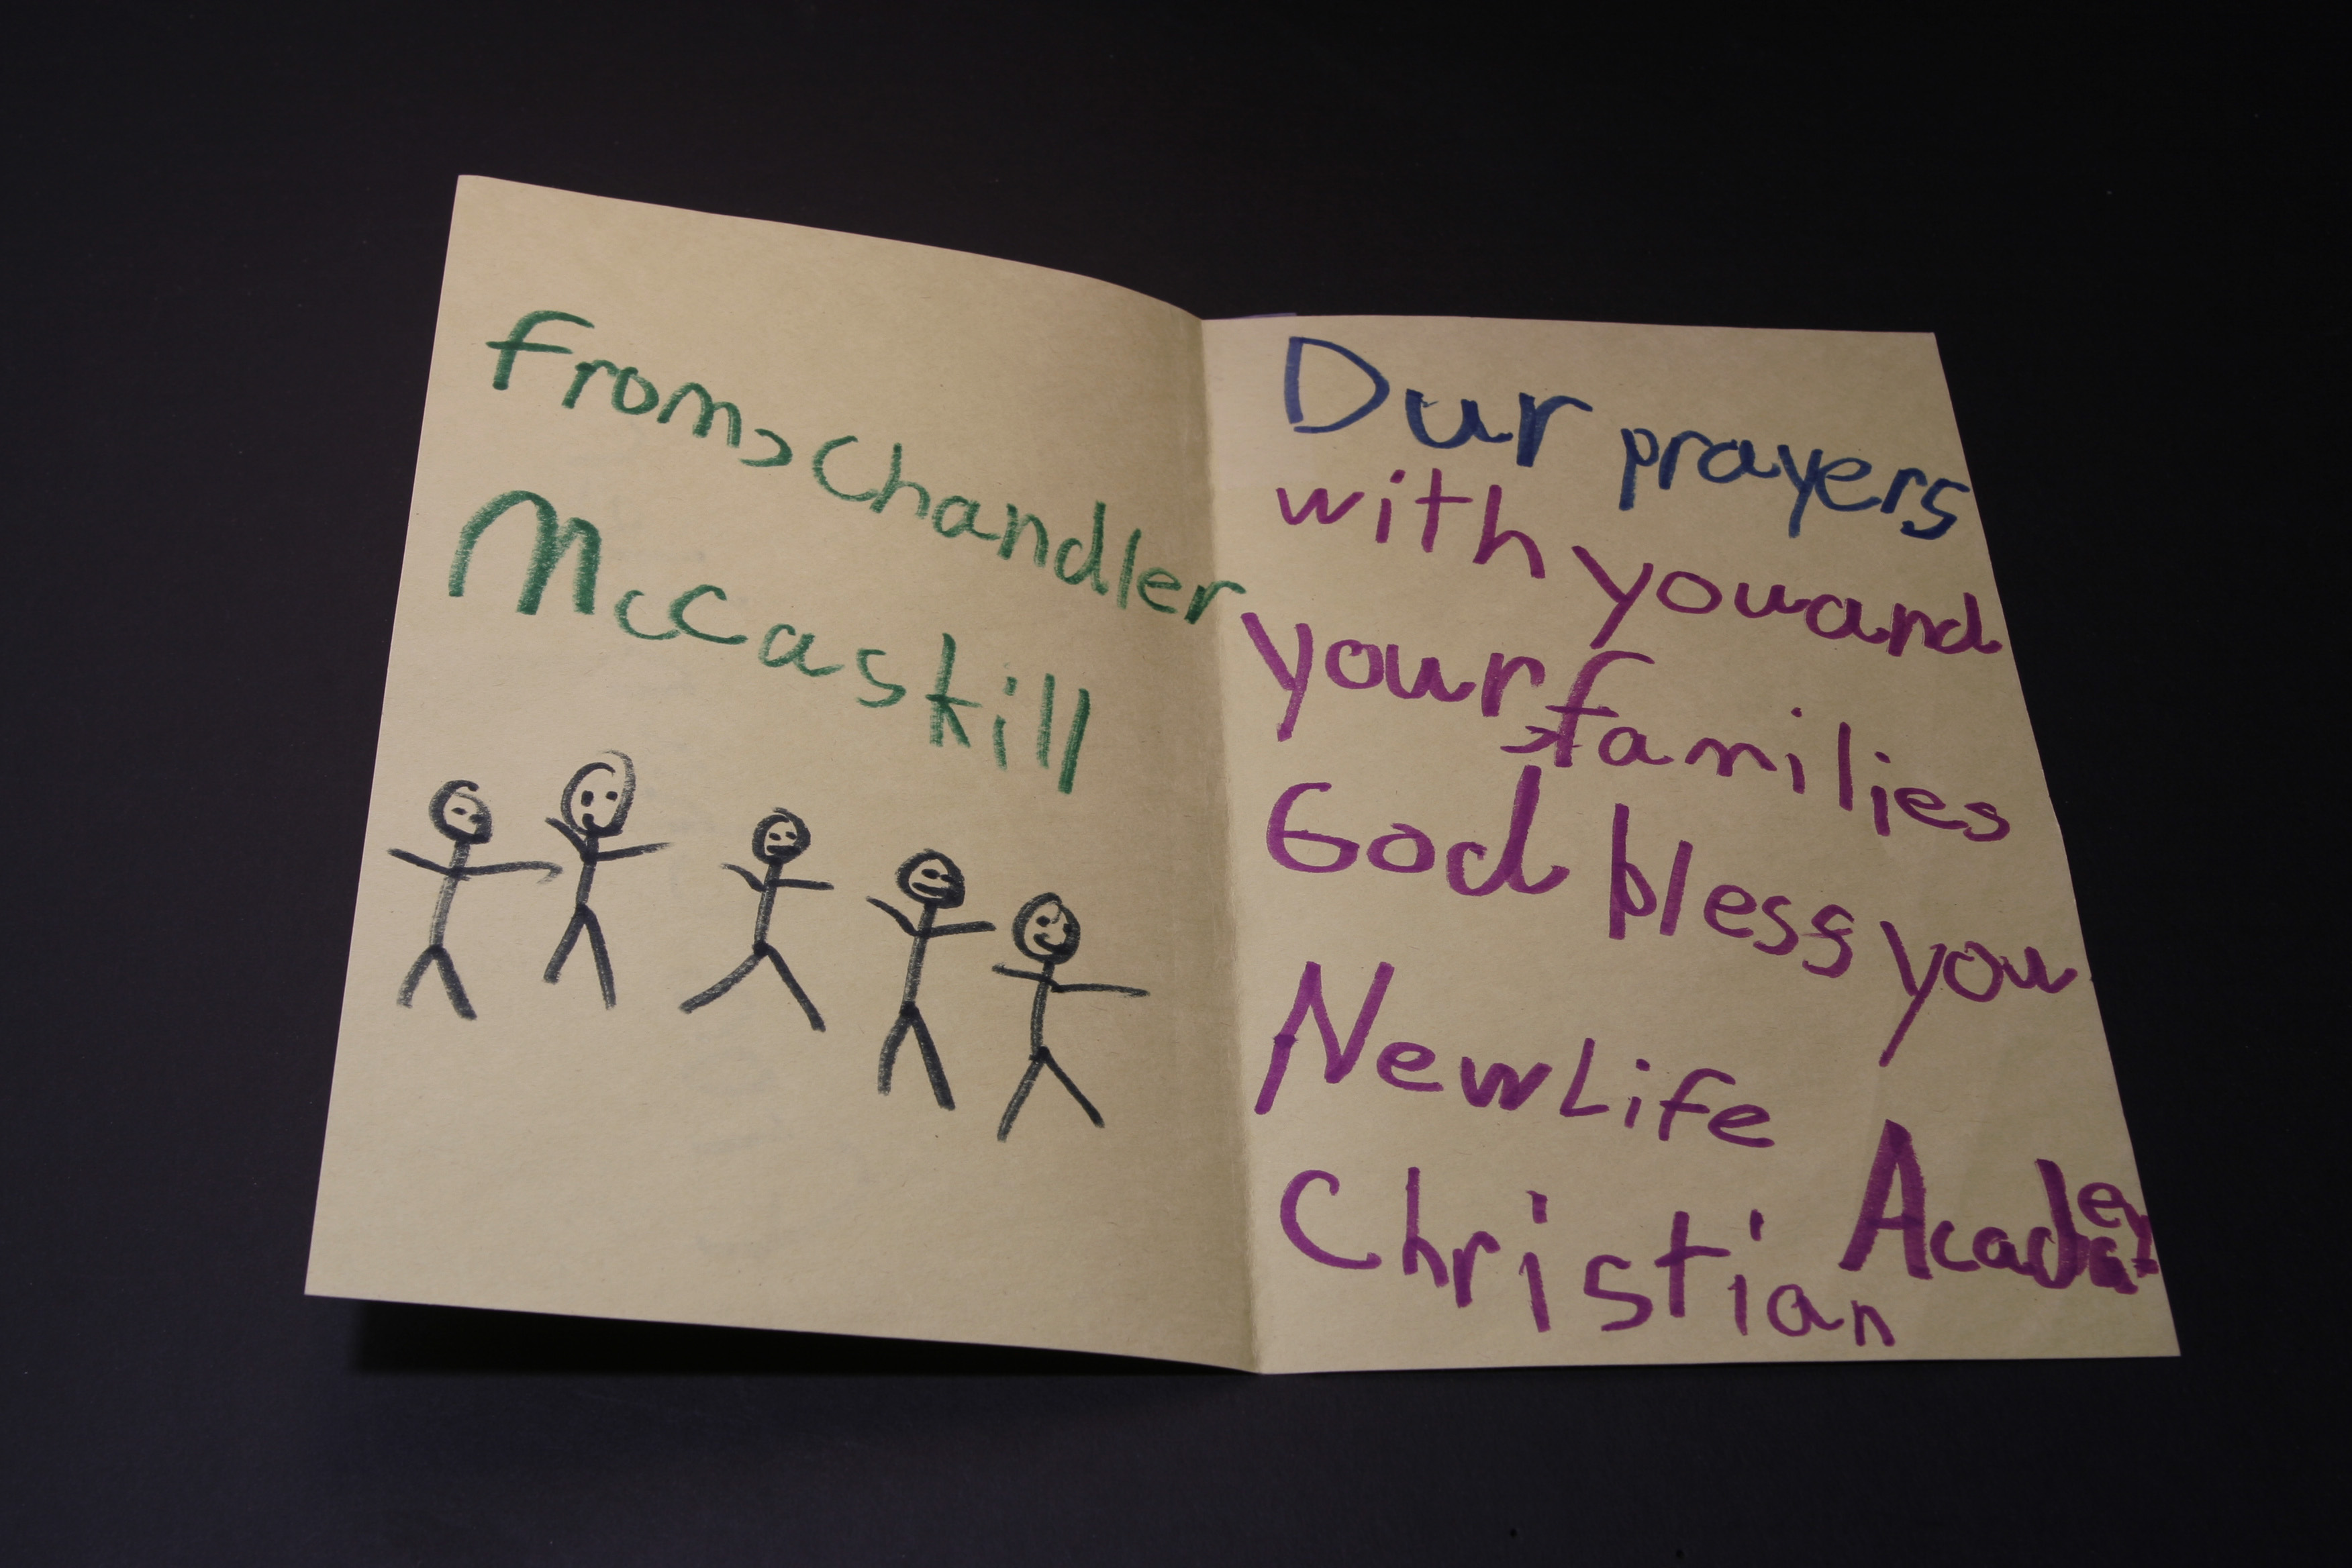 From, Chandler
McCaskill
Dur prayers
with you and
your families
God bless you
New Life
Christian Academy